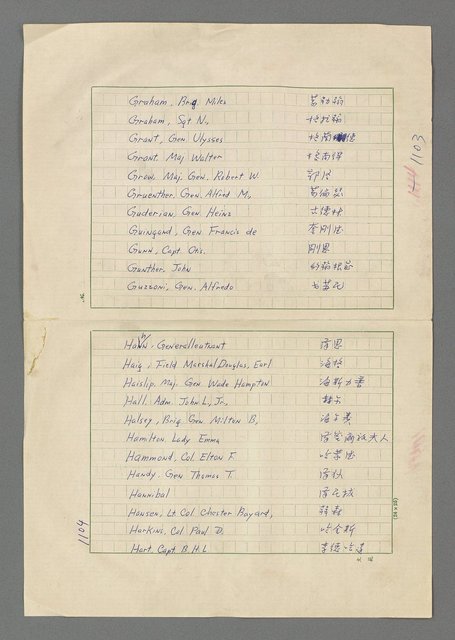 Graham, Brg. Miles 葛勒翰
Graham, Sgt N.,
Grant, Gen. Ulysses 格蘭德
Grant. Maj Walter
Grow. Maj. Gen. Robert W.
Gruenther, Gen. Alfred M.,
Guderian, Gen. Heinz 古德林
Guingand, Gen. Francis de 奎剛德
Gunn, Capt. Otis. 剛恩
Gunther, John
Guzzoni, Gen. Alfredo
1103
Hahn, Generalleutnant 漢恩
Haig, Field Marshal Douglas, Earl 海格
Haislip. Maj. Gen. Wade Hampton
Hall. Adm. John L., Jr., 赫爾
Halsey, Brig. Gen. Milton B,
Hamilton, Lady Emma 漢密爾頓夫人
Hammond, Col. Elton F. 哈蒙德
Handy. Gen Thomas T. 漢狄
Hannibal 漢尼拔
Hansen, Lt Col. Chester Bayard, 韓森
Harkins, Col. Paul D. 哈金斯
Hart. Capt. B.H.L 李德哈達
1104